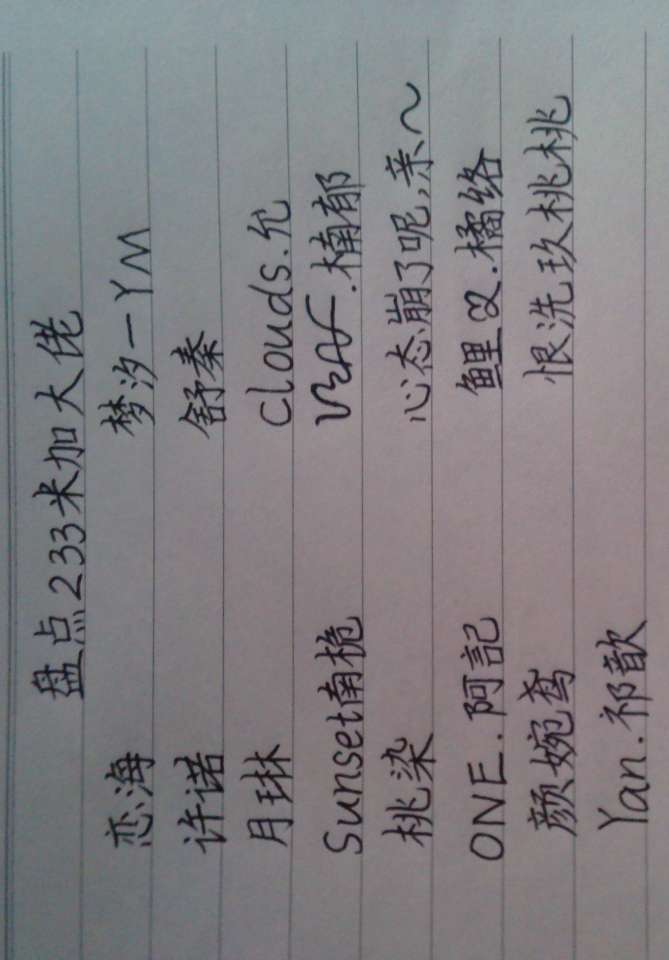 盘点233米加大佬
恋海 梦汐一YM
许诺 舒秦
月琳 Clouds.允
Sunset南桅 .楠郁
桃染 心态崩了呢,亲~
ONE.阿記 鲤.橘络
颜婉鸢 恨洗玖桃桃
Yan.祁歆